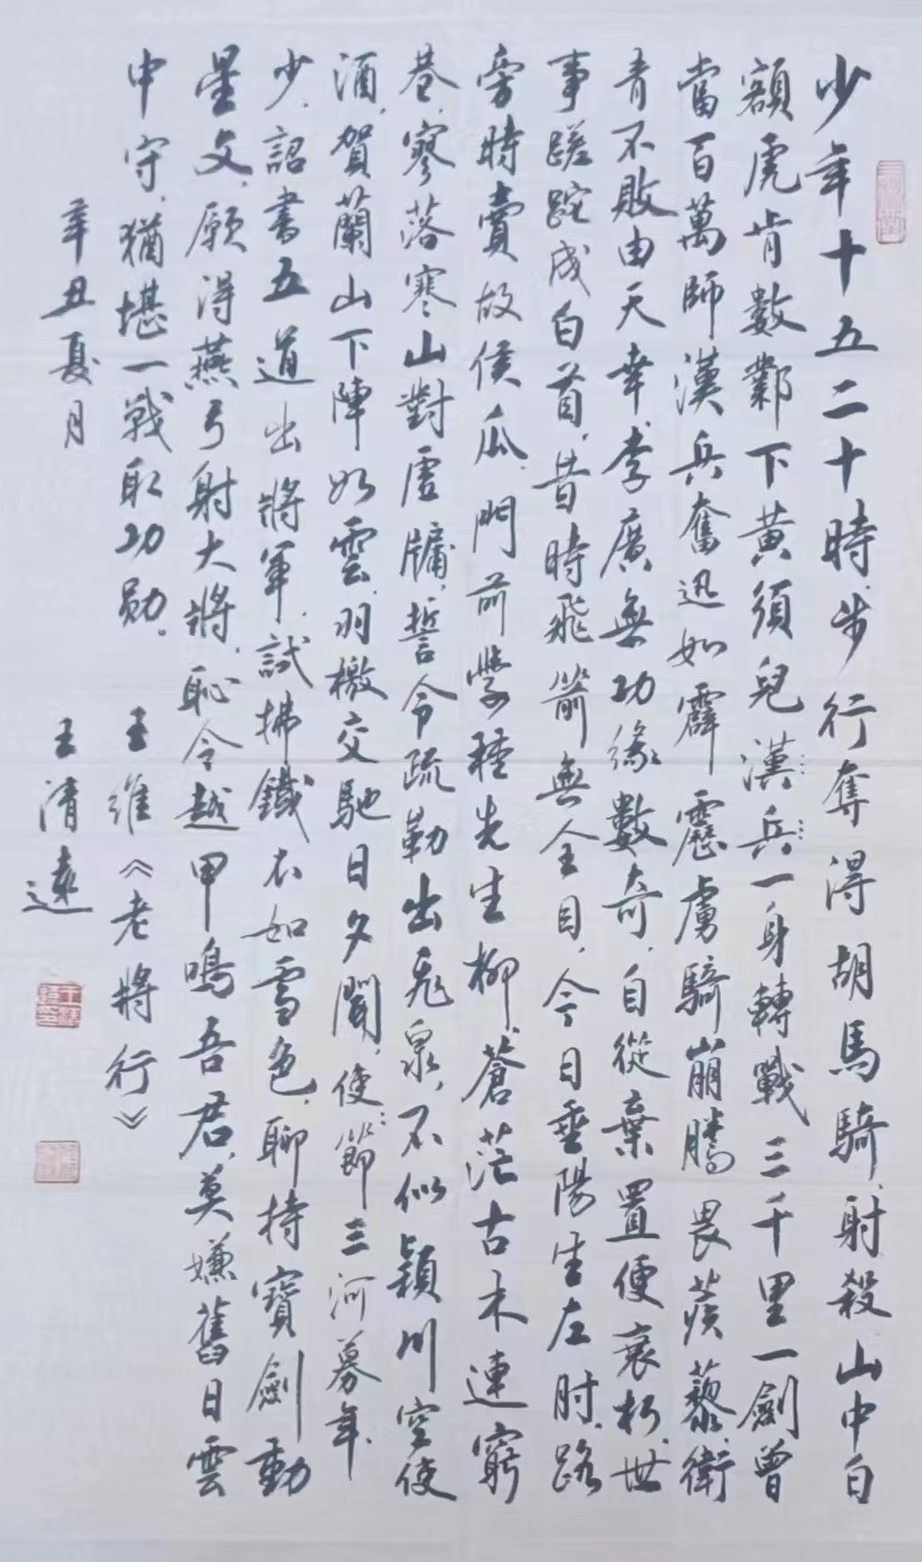 少年十五二十時，步行奪得胡馬騎，射殺山中白
額虎肯數鄴下黃須兒漢兵一身轉戰三千里一劍曾
當百萬師漢兵奮迅如霹靂虜騎崩騰畏蒺藜，衛
青不敗由天幸，李廣無功緣數奇，自從棄置便衰朽，世
事蹉跎成白首，昔時飛箭無全目，今日垂陽生左肘，路
旁時賣故侯瓜，門前學種先生柳，蒼茫古木連窮
巷，寥落寒山對虛牖，誓令疏勒出飛泉，不似潁川空使
酒，賀蘭山下陣如雲，羽檄交馳日夕聞，使節三河募年
少，詔書五道出將軍，試拂鐵衣如雪色，聊持寶劍動
星文，願得燕弓射大將，恥令越甲鳴吾君，莫嫌舊日雲
中守，猶堪一戰取功勛。 王維《老將行》
辛丑夏月 王清遠